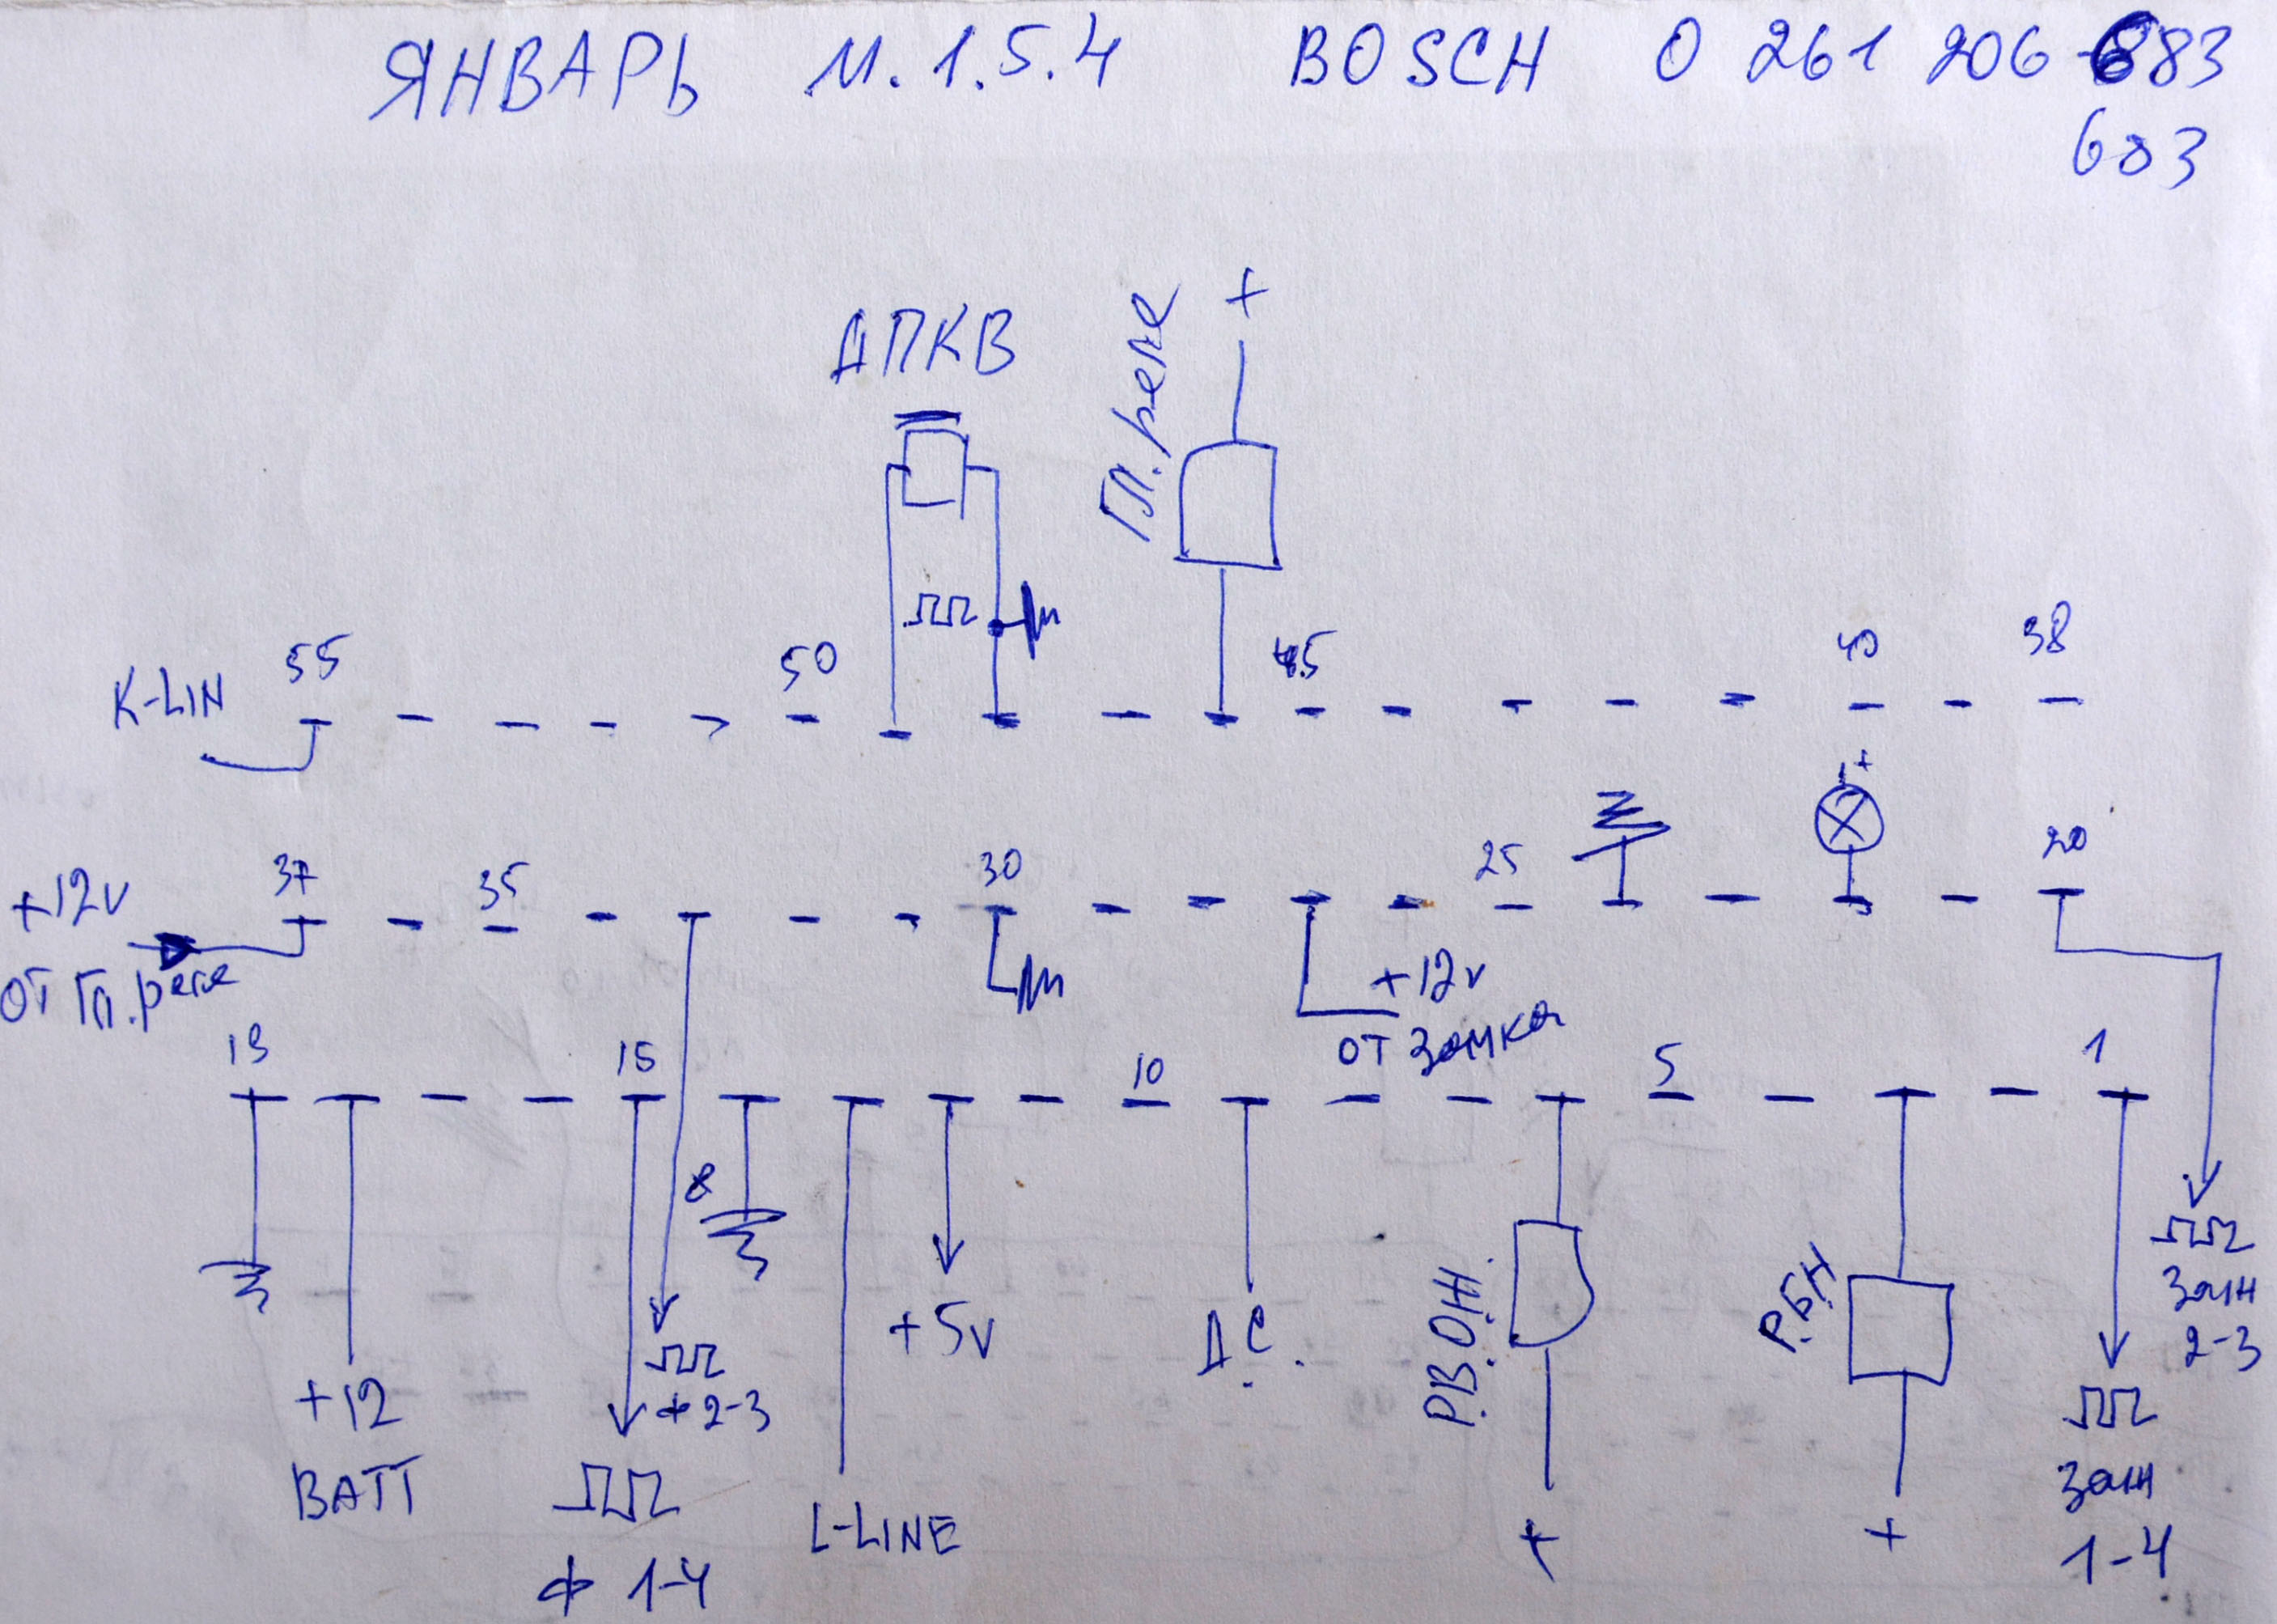 ЯНВАРЬ М.1.5.4 BOSCH 0 261 206 683
603
+
ДПКВ
Гл.реле
K-LIN 55 50 45 40 38
+
+12v 37 35 30 25 20
от Гл.реле
+12v
от замка
19 15 10 5 1
+12
BATT
ф 2-3
ф 1-4
L-LINE
+5v
Д.С.
Р.В.О.Н.
+
Р.Б.Н
+
заж
1-4
заж
2-3